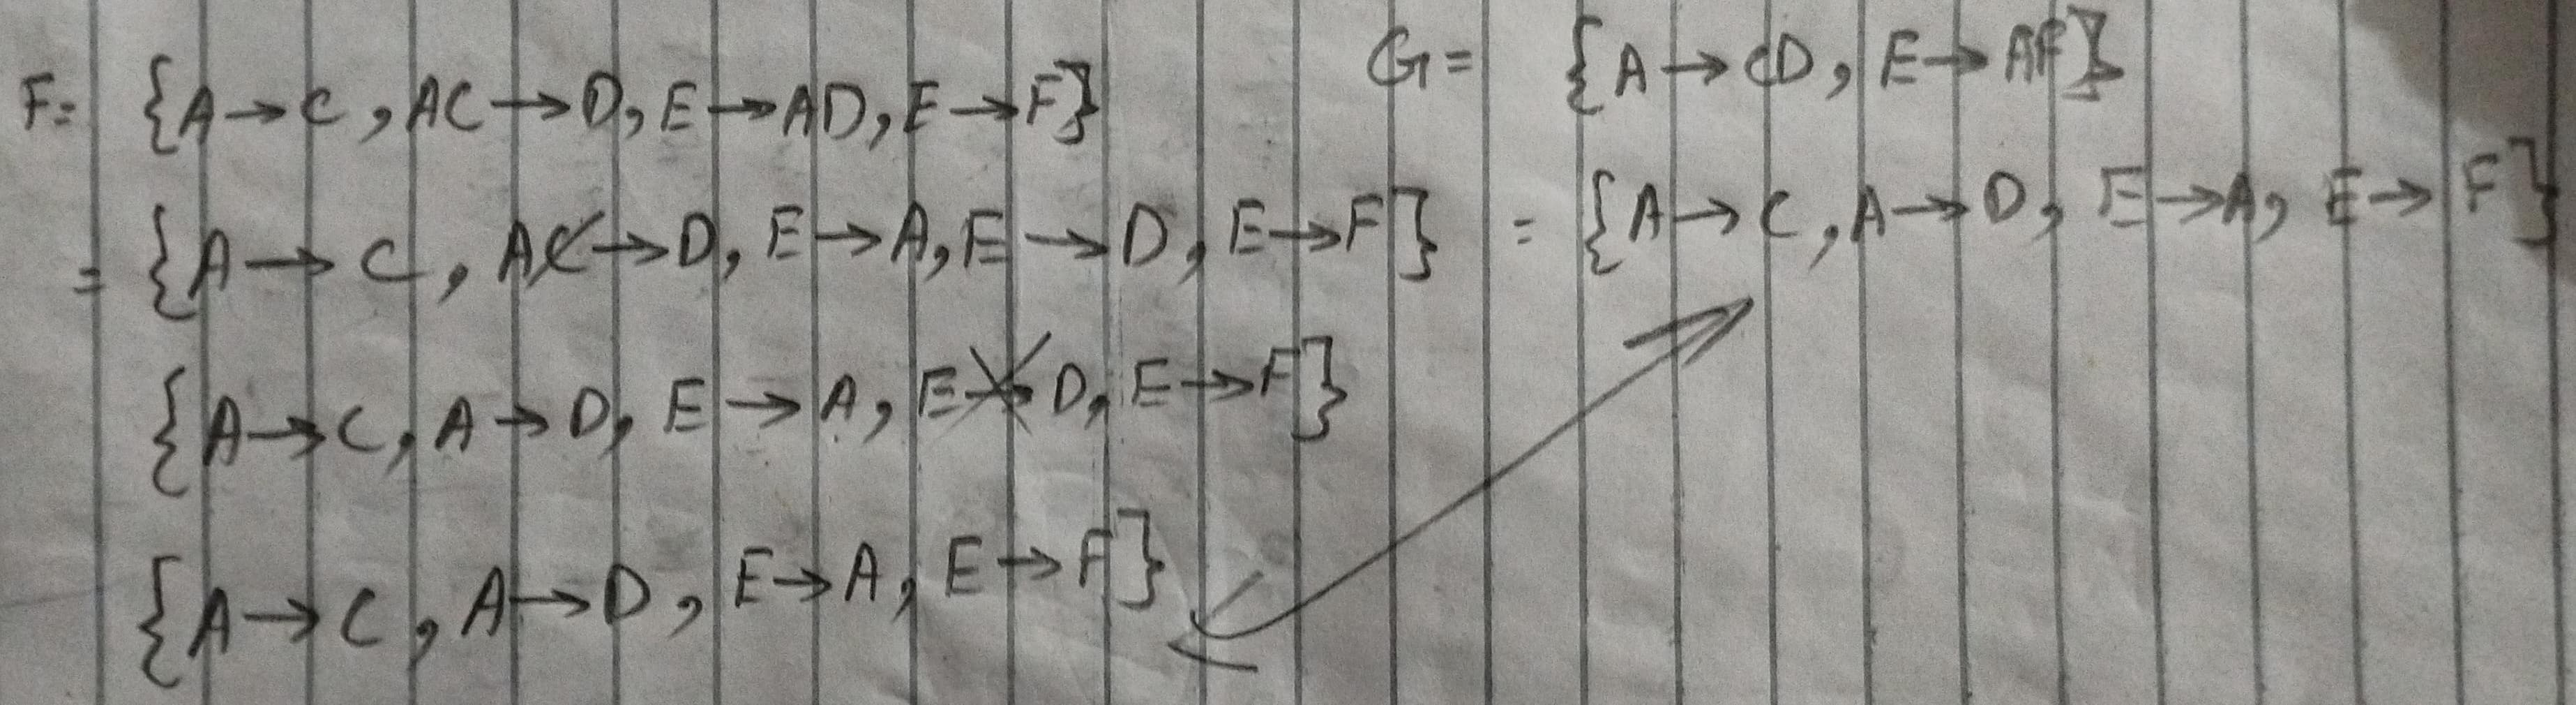 F= {A→C, AC→D, E→AD, E→F}
G= {A→CD, E→AF}
= {A→C, AC→D, E→A, E→D, E→F}
= {A→C, A→D, E→A, E→F}
{A→C, A→D, E→A, E→D, E→F}
{A→C, A→D, E→A, E→F}